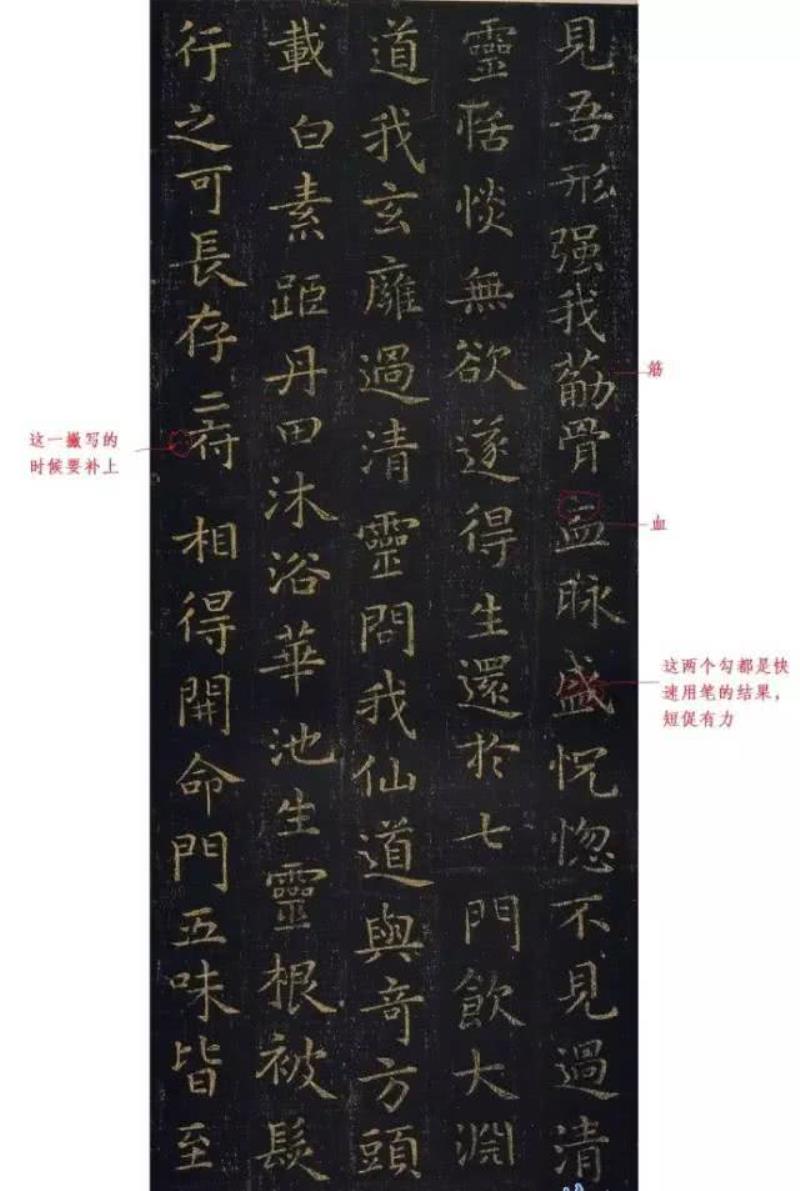 見吾形强我觔骨血脉盛怳惚不見過清
靈恬惔無欲遂得生還於七門飲大淵
道我玄廱過清靈問我仙道與奇方頭
載白素距丹田沐浴華池生靈根被髮
行之可長存二符相得開命門五味皆至
筋
血
这两个勾都是快
速用笔的结果，
短促有力
这一撇写的
时候要补上